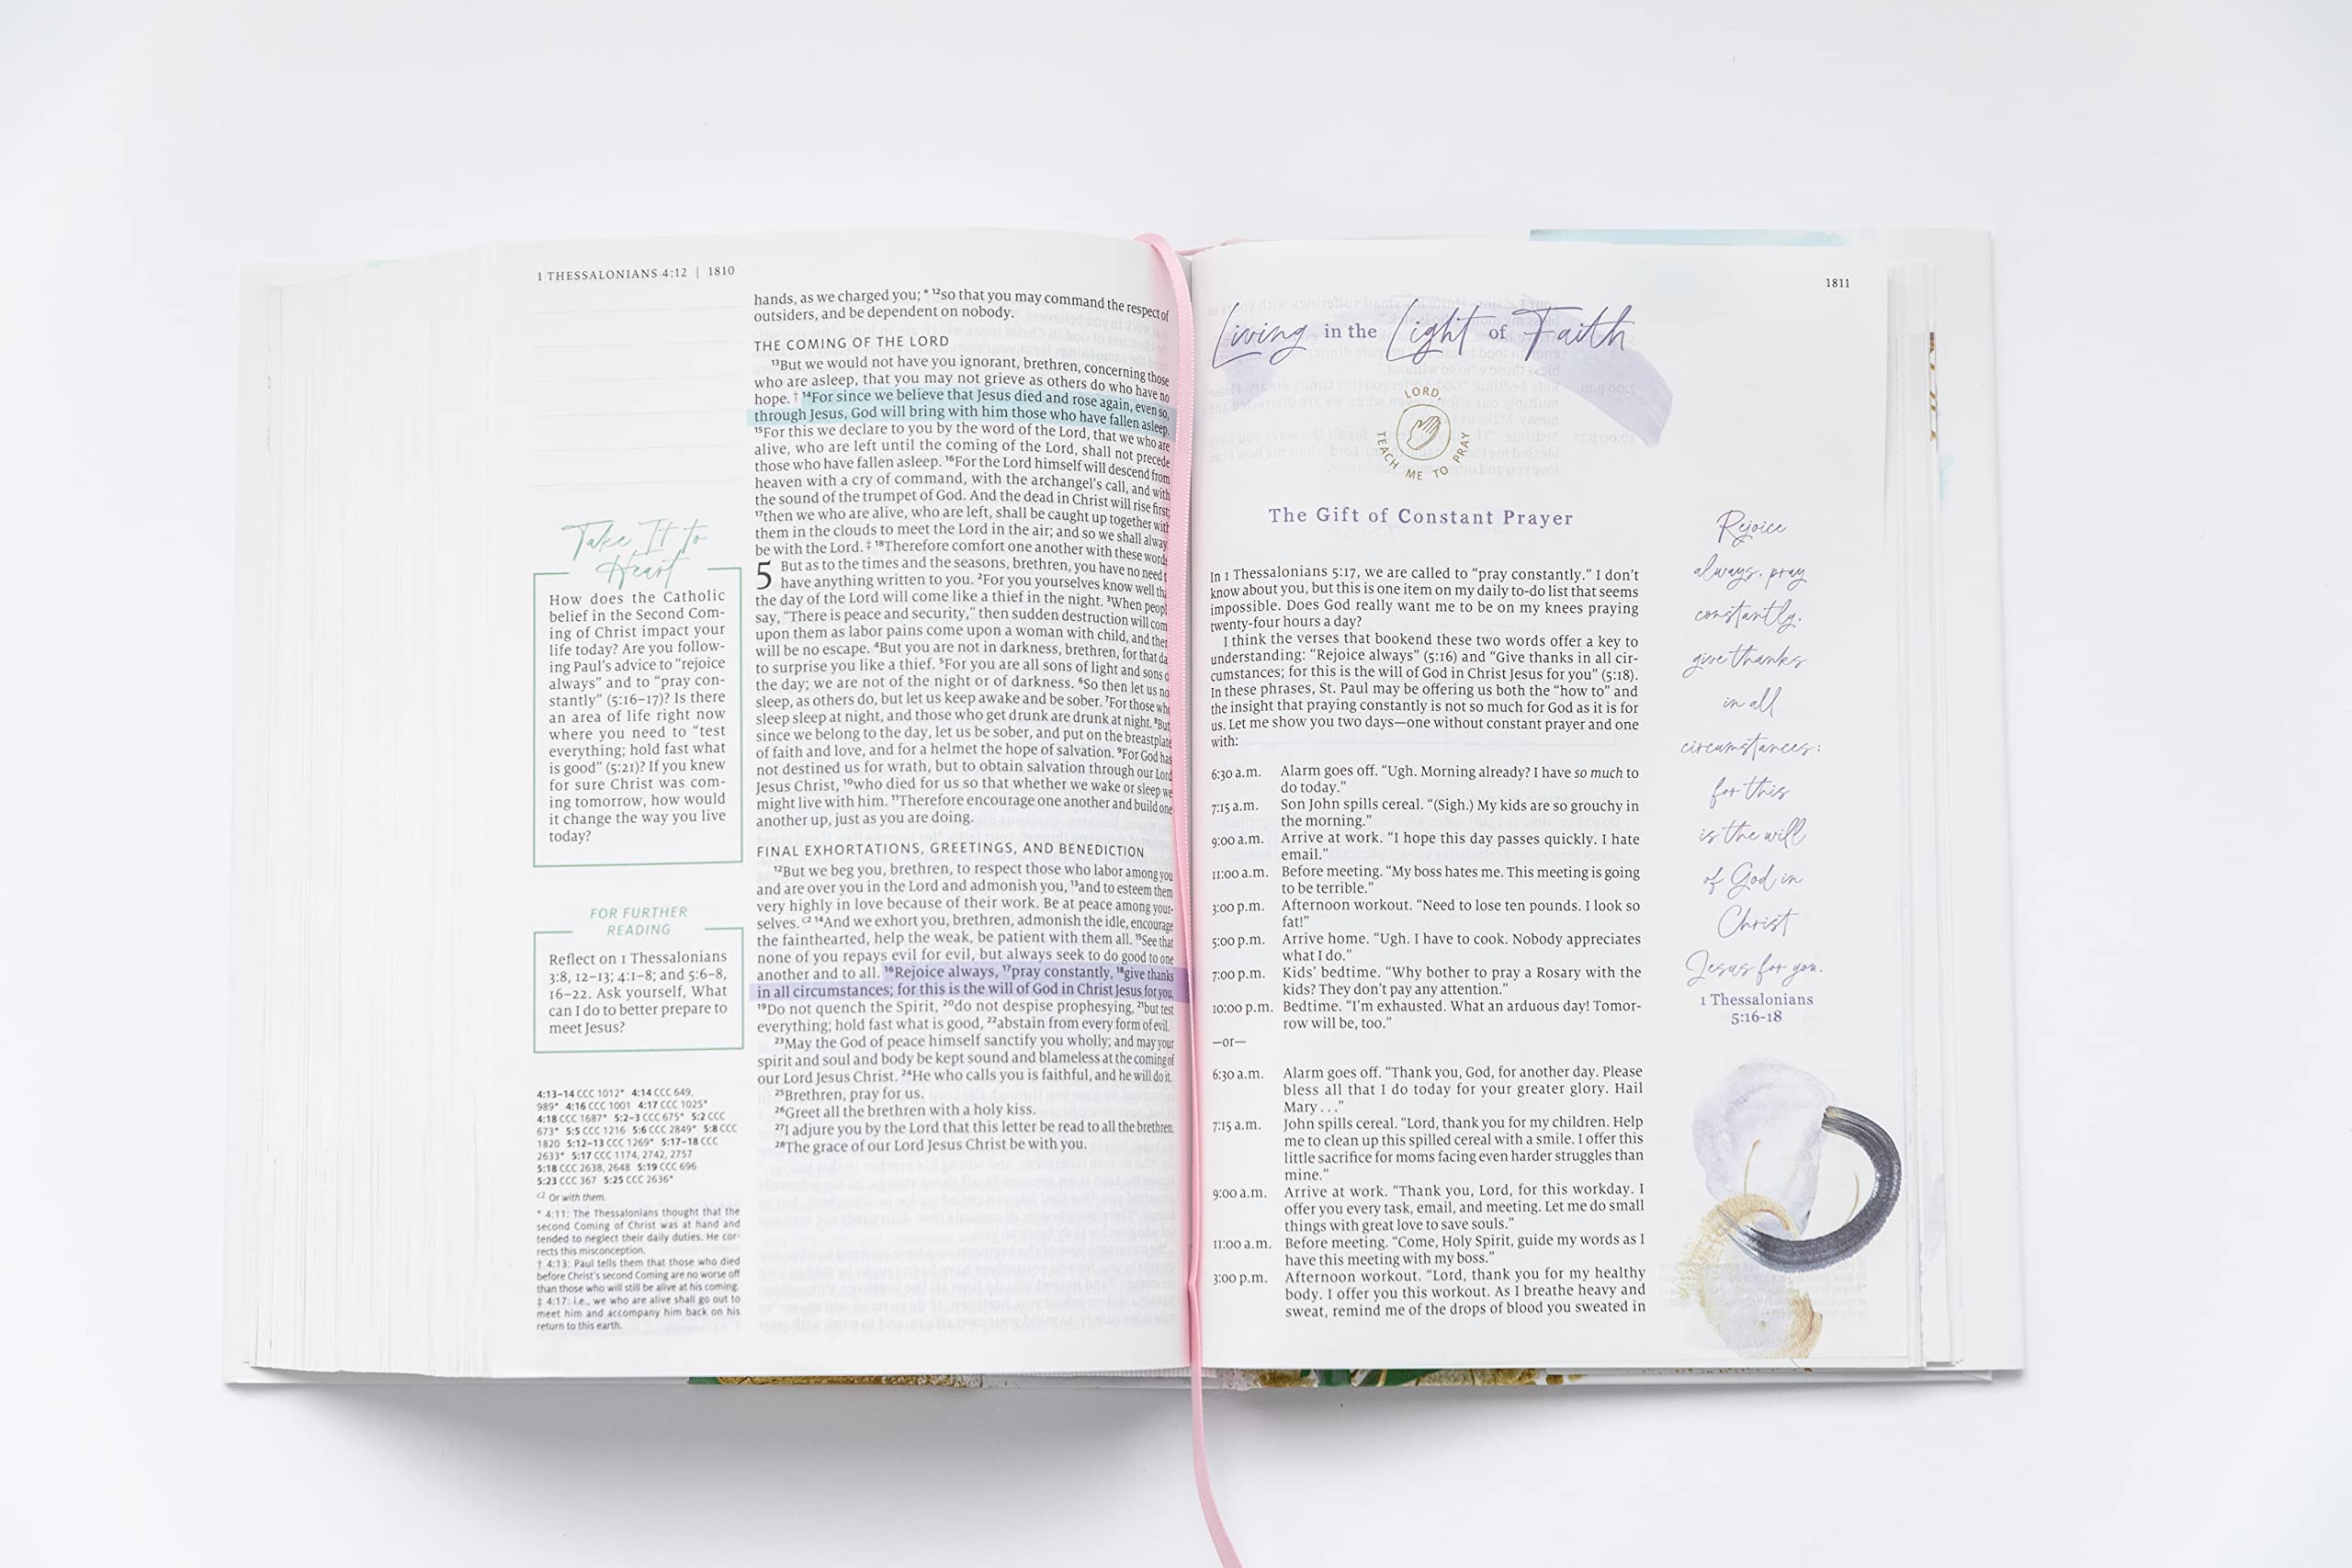 1 THESSALONIANS 4:12 | 1810
hands, as we charged you; * ¹²so that you may command the respect of
outsiders, and be dependent on nobody.
THE COMING OF THE LORD
¹³But we would not have you ignorant, brethren, concerning those
who are asleep, that you may not grieve as others do who have no
hope. † ¹⁴For since we believe that Jesus died and rose again, even so,
through Jesus, God will bring with him those who have fallen asleep.
¹⁵For this we declare to you by the word of the Lord, that we who are
alive, who are left until the coming of the Lord, shall not precede
those who have fallen asleep. ¹⁶For the Lord himself will descend from
heaven with a cry of command, with the archangel's call, and with
the sound of the trumpet of God. And the dead in Christ will rise first;
¹⁷then we who are alive, who are left, shall be caught up together with
them in the clouds to meet the Lord in the air; and so we shall alway
be with the Lord. ‡ ¹⁸Therefore comfort one another with these words
5 But as to the times and the seasons, brethren, you have no need t
have anything written to you. ²For you yourselves know well tha
the day of the Lord will come like a thief in the night. ³When peopl
say, "There is peace and security," then sudden destruction will com
upon them as labor pains come upon a woman with child, and ther
will be no escape. ⁴But you are not in darkness, brethren, for that da
to surprise you like a thief. ⁵For you are all sons of light and sons o
the day; we are not of the night or of darkness. ⁶So then let us no
sleep, as others do, but let us keep awake and be sober. ⁷For those wh
sleep sleep at night, and those who get drunk are drunk at night. ⁸But
since we belong to the day, let us be sober, and put on the breastplate
of faith and love, and for a helmet the hope of salvation. ⁹For God has
not destined us for wrath, but to obtain salvation through our Lord
Jesus Christ, ¹⁰who died for us so that whether we wake or sleep we
might live with him. ¹¹Therefore encourage one another and build one
another up, just as you are doing.
FINAL EXHORTATIONS, GREETINGS, AND BENEDICTION
¹²But we beg you, brethren, to respect those who labor among you
and are over you in the Lord and admonish you, ¹³and to esteem them
very highly in love because of their work. Be at peace among your-
selves. ᶜ² ¹⁴And we exhort you, brethren, admonish the idle, encourage
the fainthearted, help the weak, be patient with them all. ¹⁵See that
none of you repays evil for evil, but always seek to do good to one
another and to all. ¹⁶Rejoice always, ¹⁷pray constantly, ¹⁸give thanks
in all circumstances; for this is the will of God in Christ Jesus for you.
¹⁹Do not quench the Spirit, ²⁰do not despise prophesying, ²¹but test
everything; hold fast what is good, ²²abstain from every form of evil.
²³May the God of peace himself sanctify you wholly; and may your
spirit and soul and body be kept sound and blameless at the coming of
our Lord Jesus Christ. ²⁴He who calls you is faithful, and he will do it.
²⁵Brethren, pray for us.
²⁶Greet all the brethren with a holy kiss.
²⁷I adjure you by the Lord that this letter be read to all the brethren.
²⁸The grace of our Lord Jesus Christ be with you.
Take It to
Heart
How does the Catholic
belief in the Second Com-
ing of Christ impact your
life today? Are you follow-
ing Paul's advice to "rejoice
always" and to "pray con-
stantly" (5:16–17)? Is there
an area of life right now
where you need to "test
everything; hold fast what
is good" (5:21)? If you knew
for sure Christ was com-
ing tomorrow, how would
it change the way you live
today?
FOR FURTHER
READING
Reflect on 1 Thessalonians
3:8, 12–13; 4:1–8; and 5:6–8,
16–22. Ask yourself, What
can I do to better prepare to
meet Jesus?
4:13–14 CCC 1012* 4:14 CCC 649,
989* 4:16 CCC 1001 4:17 CCC 1025*
4:18 CCC 1687* 5:2–3 CCC 675* 5:2 CCC
673* 5:5 CCC 1216 5:6 CCC 2849* 5:8 CCC
1820 5:12–13 CCC 1269* 5:17–18 CCC
2633* 5:17 CCC 1174, 2742, 2757
5:18 CCC 2638, 2648 5:19 CCC 696
5:23 CCC 367 5:25 CCC 2636*
ᶜ² Or with them.
* 4:11: The Thessalonians thought that the
second Coming of Christ was at hand and
tended to neglect their daily duties. He cor-
rects this misconception.
† 4:13: Paul tells them that those who died
before Christ's second Coming are no worse off
than those who will still be alive at his coming.
‡ 4:17: i.e., we who are alive shall go out to
meet him and accompany him back on his
return to this earth.
1811
Living in the Light of Faith
LORD,
TEACH ME TO PRAY
The Gift of Constant Prayer
In 1 Thessalonians 5:17, we are called to "pray constantly." I don't
know about you, but this is one item on my daily to-do list that seems
impossible. Does God really want me to be on my knees praying
twenty-four hours a day?
I think the verses that bookend these two words offer a key to
understanding: "Rejoice always" (5:16) and "Give thanks in all cir-
cumstances; for this is the will of God in Christ Jesus for you" (5:18).
In these phrases, St. Paul may be offering us both the "how to" and
the insight that praying constantly is not so much for God as it is for
us. Let me show you two days—one without constant prayer and one
with:
6:30 a.m. Alarm goes off. "Ugh. Morning already? I have so much to
do today."
7:15 a.m. Son John spills cereal. "(Sigh.) My kids are so grouchy in
the morning."
9:00 a.m. Arrive at work. "I hope this day passes quickly. I hate
email."
11:00 a.m. Before meeting. "My boss hates me. This meeting is going
to be terrible."
3:00 p.m. Afternoon workout. "Need to lose ten pounds. I look so
fat!"
5:00 p.m. Arrive home. "Ugh. I have to cook. Nobody appreciates
what I do."
7:00 p.m. Kids' bedtime. "Why bother to pray a Rosary with the
kids? They don't pay any attention."
10:00 p.m. Bedtime. "I'm exhausted. What an arduous day! Tomor-
row will be, too."
—or—
6:30 a.m. Alarm goes off. "Thank you, God, for another day. Please
bless all that I do today for your greater glory. Hail
Mary . . ."
7:15 a.m. John spills cereal. "Lord, thank you for my children. Help
me to clean up this spilled cereal with a smile. I offer this
little sacrifice for moms facing even harder struggles than
mine."
9:00 a.m. Arrive at work. "Thank you, Lord, for this workday. I
offer you every task, email, and meeting. Let me do small
things with great love to save souls."
11:00 a.m. Before meeting. "Come, Holy Spirit, guide my words as I
have this meeting with my boss."
3:00 p.m. Afternoon workout. "Lord, thank you for my healthy
body. I offer you this workout. As I breathe heavy and
sweat, remind me of the drops of blood you sweated in
Rejoice
always, pray
constantly,
give thanks
in all
circumstances;
for this
is the will
of God in
Christ
Jesus for you.
1 Thessalonians
5:16-18